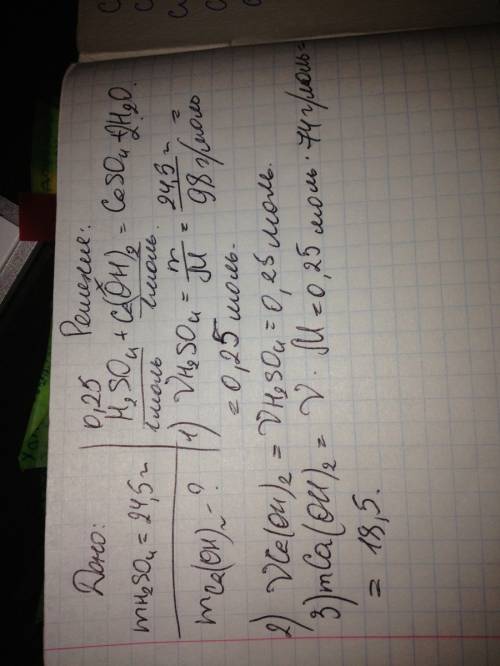 Дано:
mH₂SO₄ = 24,5 г
mCa(OH)₂ - ?
Решение:
0,25 x
H₂SO₄ + Ca(OH)₂ = CaSO₄ + 2H₂O.
1моль 1моль.
1) νH₂SO₄ = m/M = 24,5 г/98 г/моль =
= 0,25 моль.
2) νCa(OH)₂ = νH₂SO₄ = 0,25 моль.
3) mCa(OH)₂ = ν · M = 0,25 моль · 74 г/моль =
= 18,5.